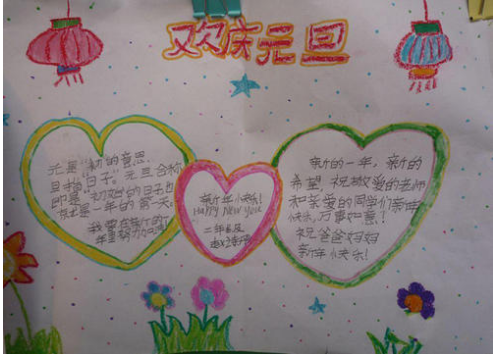 欢庆元旦
元是"初"的意思,
旦指"日子",元旦合称
即是"初始的日子也
就是一年的第一天。
我要在新的一
年里努力加油!
新年快乐!
Happy New Year
二年
新的一年,新的
希望,祝敬爱的老师
和亲爱的同学们新年
快乐,万事如意!
祝爸爸妈妈
新年快乐!